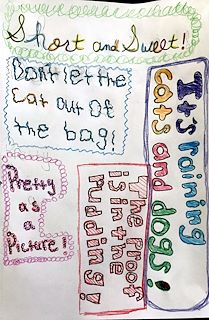 Short and Sweet!
Don't let the
cat out of
the bag!
It's raining
cats and dogs!
Pretty
as a
Picture!
The Proof
is in the
Pudding!